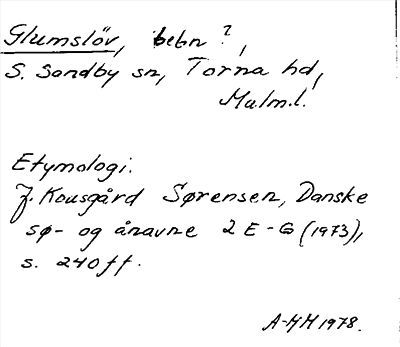 Glumslöv, bebn ?,
S. Sandby sn, Torna hd,
Malm.l.
Etymologi.
J. Kousgård Sørensen, Danske
sø- og ånavne 2 E-G (1973),
s. 240 ff.
A-HH 1978.